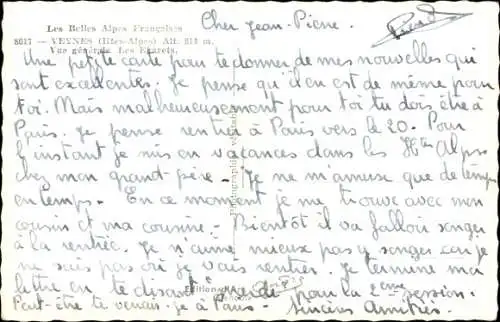 Les Belles Alpes Françaises
8017 - VEYNES (Htes-Alpes) Alt. 813 m.
Vue générale Les Eygrets.
Cher Jean-Pierre.
Une petite carte pour te donner de mes nouvelles qui
sont excellentes. Je pense qu'il en est de même pour
toi. Mais malheureusement pour toi tu dois être à
Paris. Je pense rentrer à Paris vers le 20. Pour
l'instant je suis en vacances dans les Htes Alpes
chez mon grand-père. Je ne m'amuse que de temps
en temps. En ce moment je me trouve avec mon
cousin et ma cousine. Bientôt il va falloir songer
à la rentrée. Je n'aime mieux pas y songer car je
ne sais pas où je vais rentrer. Je termine ma
lettre en te disant pour la 2ème session.
Peut-être te verrais-je à Paris. Sincères Amitiés.
Photographie véritable